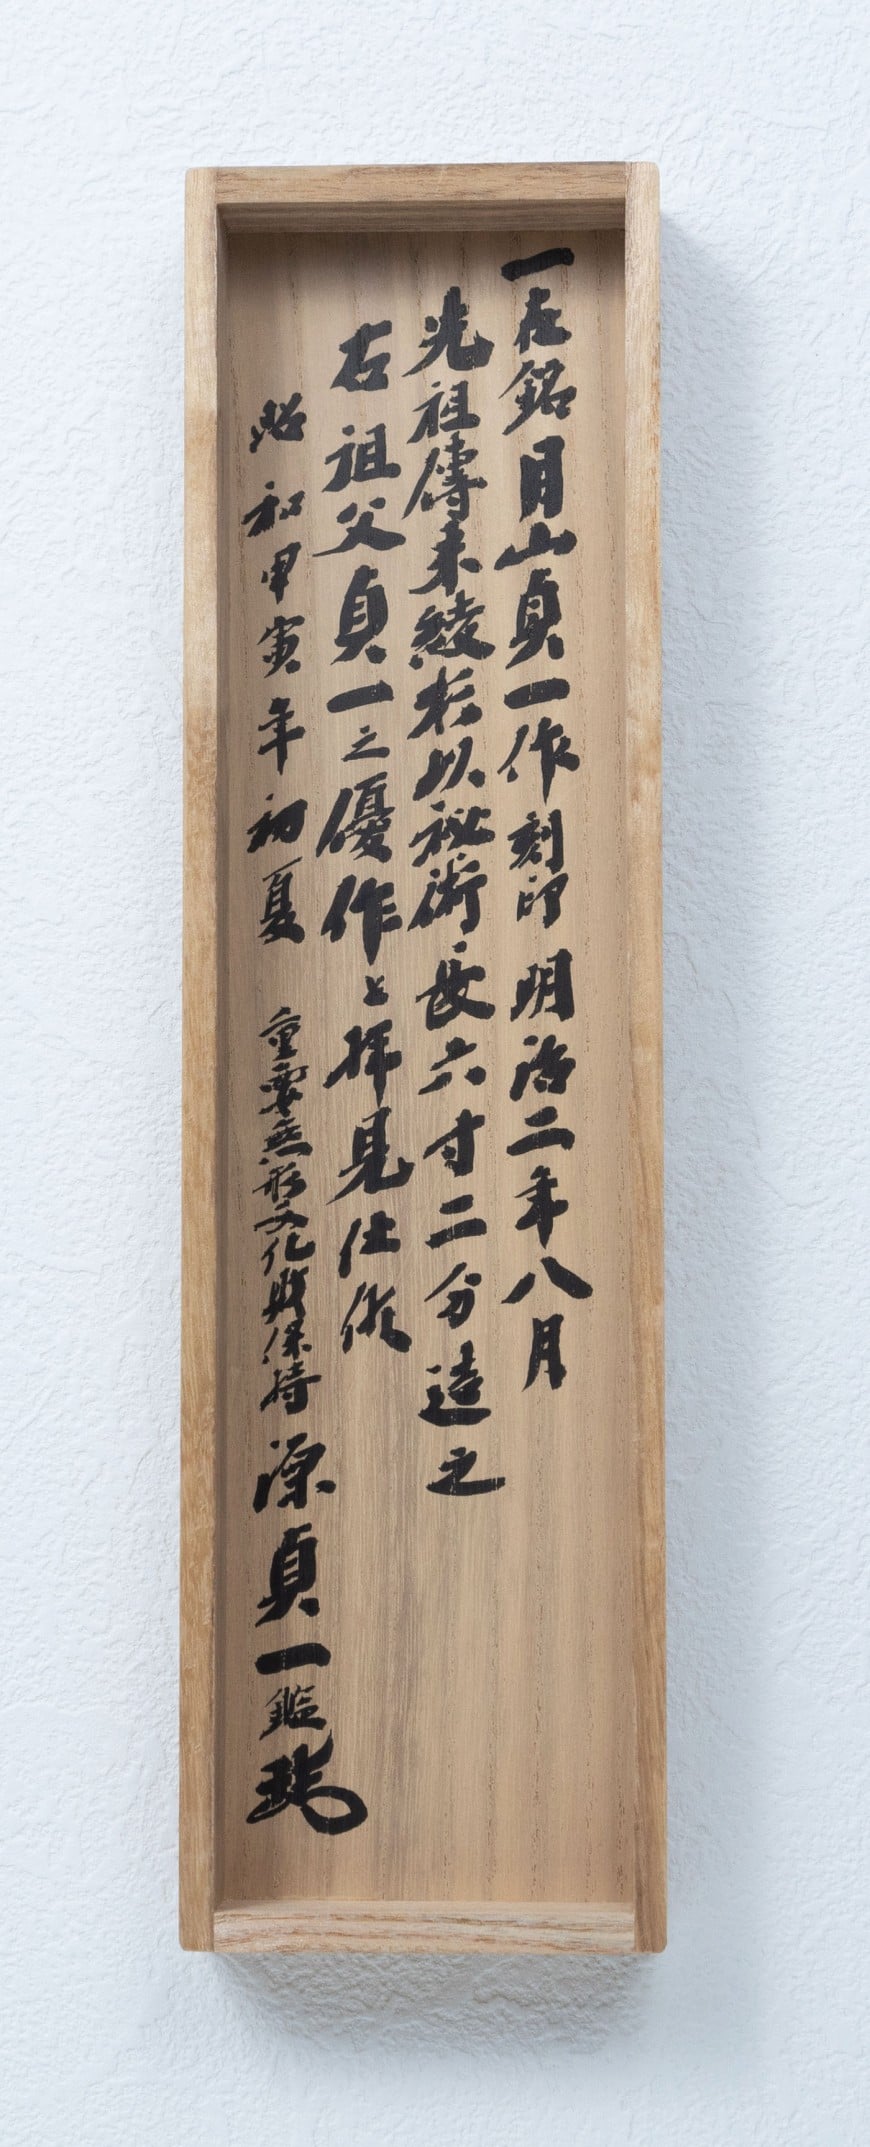 一在銘月山貞一作刻印明治二年八月
先祖傳来綾杉以秘術長六寸二分造之
右祖父貞一之優作と拝見仕候
昭和甲寅年初夏 重要無形文化財保持 源貞一鑑